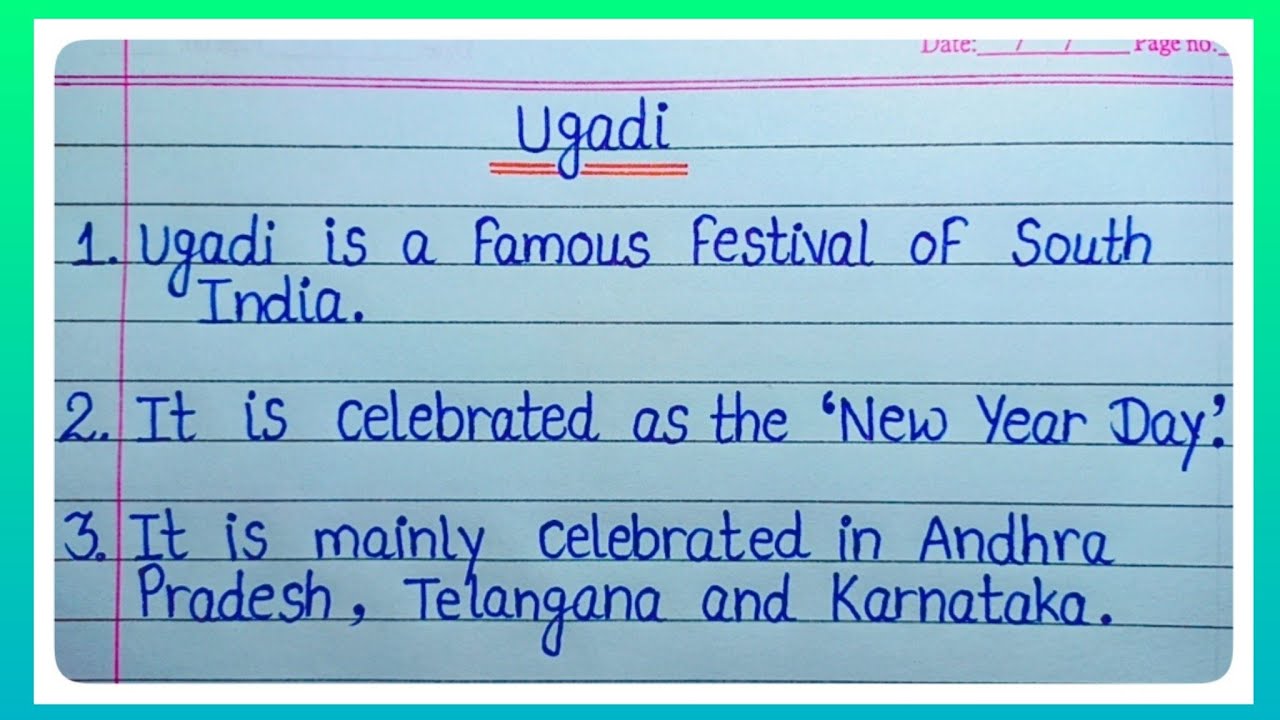 Date: / / Page no.
Ugadi
1. Ugadi is a famous festival of South
India.
2. It is celebrated as the ‘New Year Day’.
3. It is mainly celebrated in Andhra
Pradesh, Telangana and Karnataka.